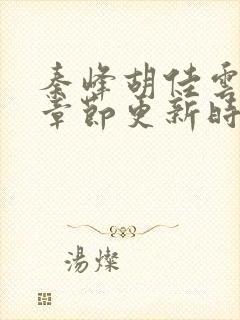 秦峰胡佳雲
章節更新時
湯燦